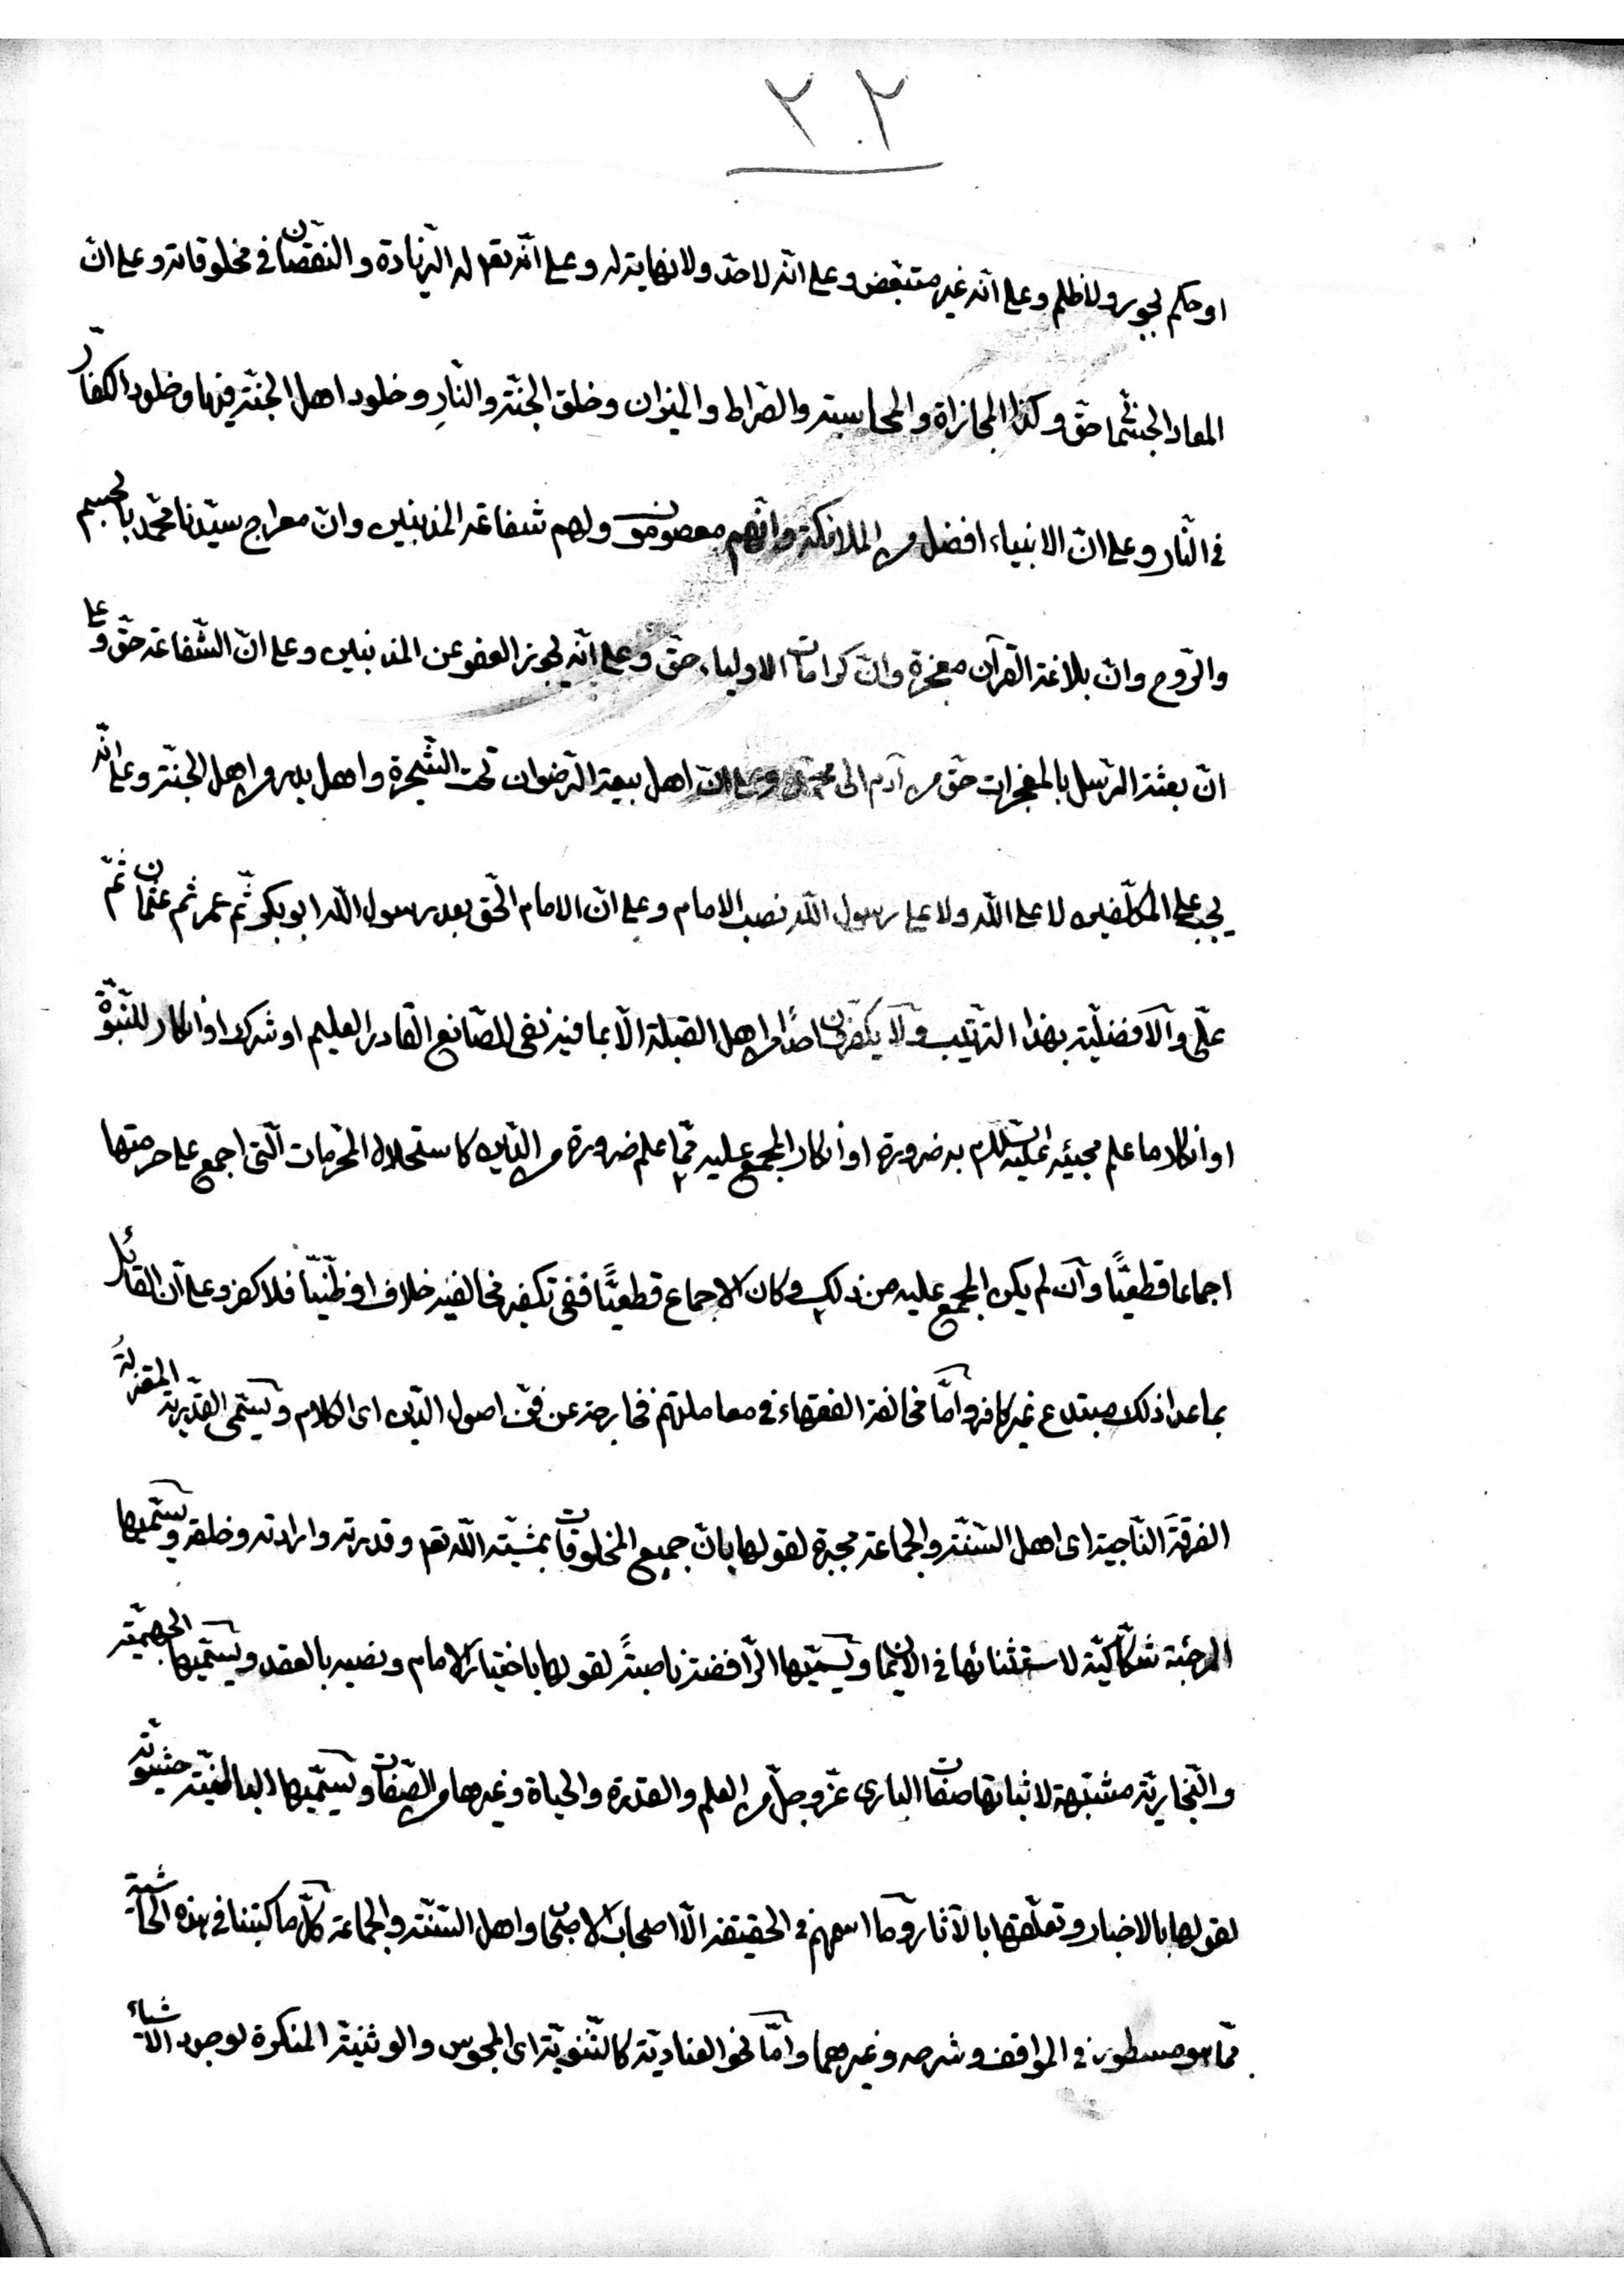 ٢٠٢
او حكم بجور ولا ظلم وعلى انّه غير متبعّض وعلى انّه لا حدّ ولا نهاية له وعلى انّه تعم له الزّيادة والنّقصان في مخلوقاته وعلى انّ
المعاد الجسمّا حقّ وكذا المجازاة والمحاسبة والصّراط والميزان وخلق الجنّة والنّارِ وخلود اهل الجنّة فيها وخلود الكفّار
في النّار وعلى انّ الانبياء افضل من الملائكة وانّهم معصومون ولهم شفاعة المذنبين وانّ معراج سيّدنا محمّد بالجسم
والرّوح وانّ بلاغة القرآن معجزة وانّ كرامات الاولياء حقّ وعلى انّه يجوز العفو عن المذنبين وعلى انّ الشّفاعة حقّ وعلى
انّ بعثة الرّسل بالمعجزات حقّ من آدم الى محمّد وعلى انّ اهل بيعة الرّضوان تحت الشّجرة واهل بدر من اهل الجنّة وعلى انّه
يجب على المكلّفين لا على اللّه ولا على رسول اللّه نصب الامام وعلى انّ الامام الحقّ بعد رسول اللّه ابو بكر ثمّ عمر ثم عثمان ثمّ
علّي والآفضليّة بهذا الترتيب ولا يكفّرون احدًا من اهل القبلة الّا بما فيه نفى للصّانع القادر العليم او شرك او انكار للنّبوّة
او انكار ما علم مجيئه عليه السّلام به ضرورة او انكار المجمع عليه ممّا علم ضرورة من الدّين كاستحلال المحرّمات الّتى اجمع على حرمتها
اجماعا قطعيًّا وان لم يكن المجمع عليه من ذلك وكان الاجماع قطعيًّا ففى تكفير مخالفيه خلاف او ظنّيّا فلا كفر وعلى انّ القائل
بما عدا ذلك مبتدع غير كافر وامّا مخالفة الفقهاء في معاملتهم فخارجة عن فنّ اصول الدّين اى الكلام وتسمّى القدّرية المعتزلةُ
الفرقةَ النّاجية اى اهل السّنّة والجماعة مجبرة لقولها بانّ جميع المخلوقات بمشيّة اللّه تعم وقدرته وارادته وخلقه وتسمّيها
المرجئة شكّاكيّة لاستثنائها في الايمان وتسمّيها الرّافضة ناصبةً لقولها باختيار الامام ونصبه بالعقد وتسمّيها الجهميّة
والنّجاريّة مشبّهة لاثباتها صفات البارى عزّ وجلّ من العلم والقدرة والحياة وغيرها من الصّفات وتسمّيها الباطنيّة حشويّة
لقولها بالاخبار وتعلّقها بالآثار وما اسمهم في الحقيقة الّا اصحاب الاصحاب واهل السّنّة والجماعة كلّ ما كتبنا في هذه الحاشية
ممّا هو مسطور في المواقف وشرحه وغيرهما وامّا نحو العناديّة كالثّنويّة اى المجوس والوثنيّة المنكرة لوجود الاشياء